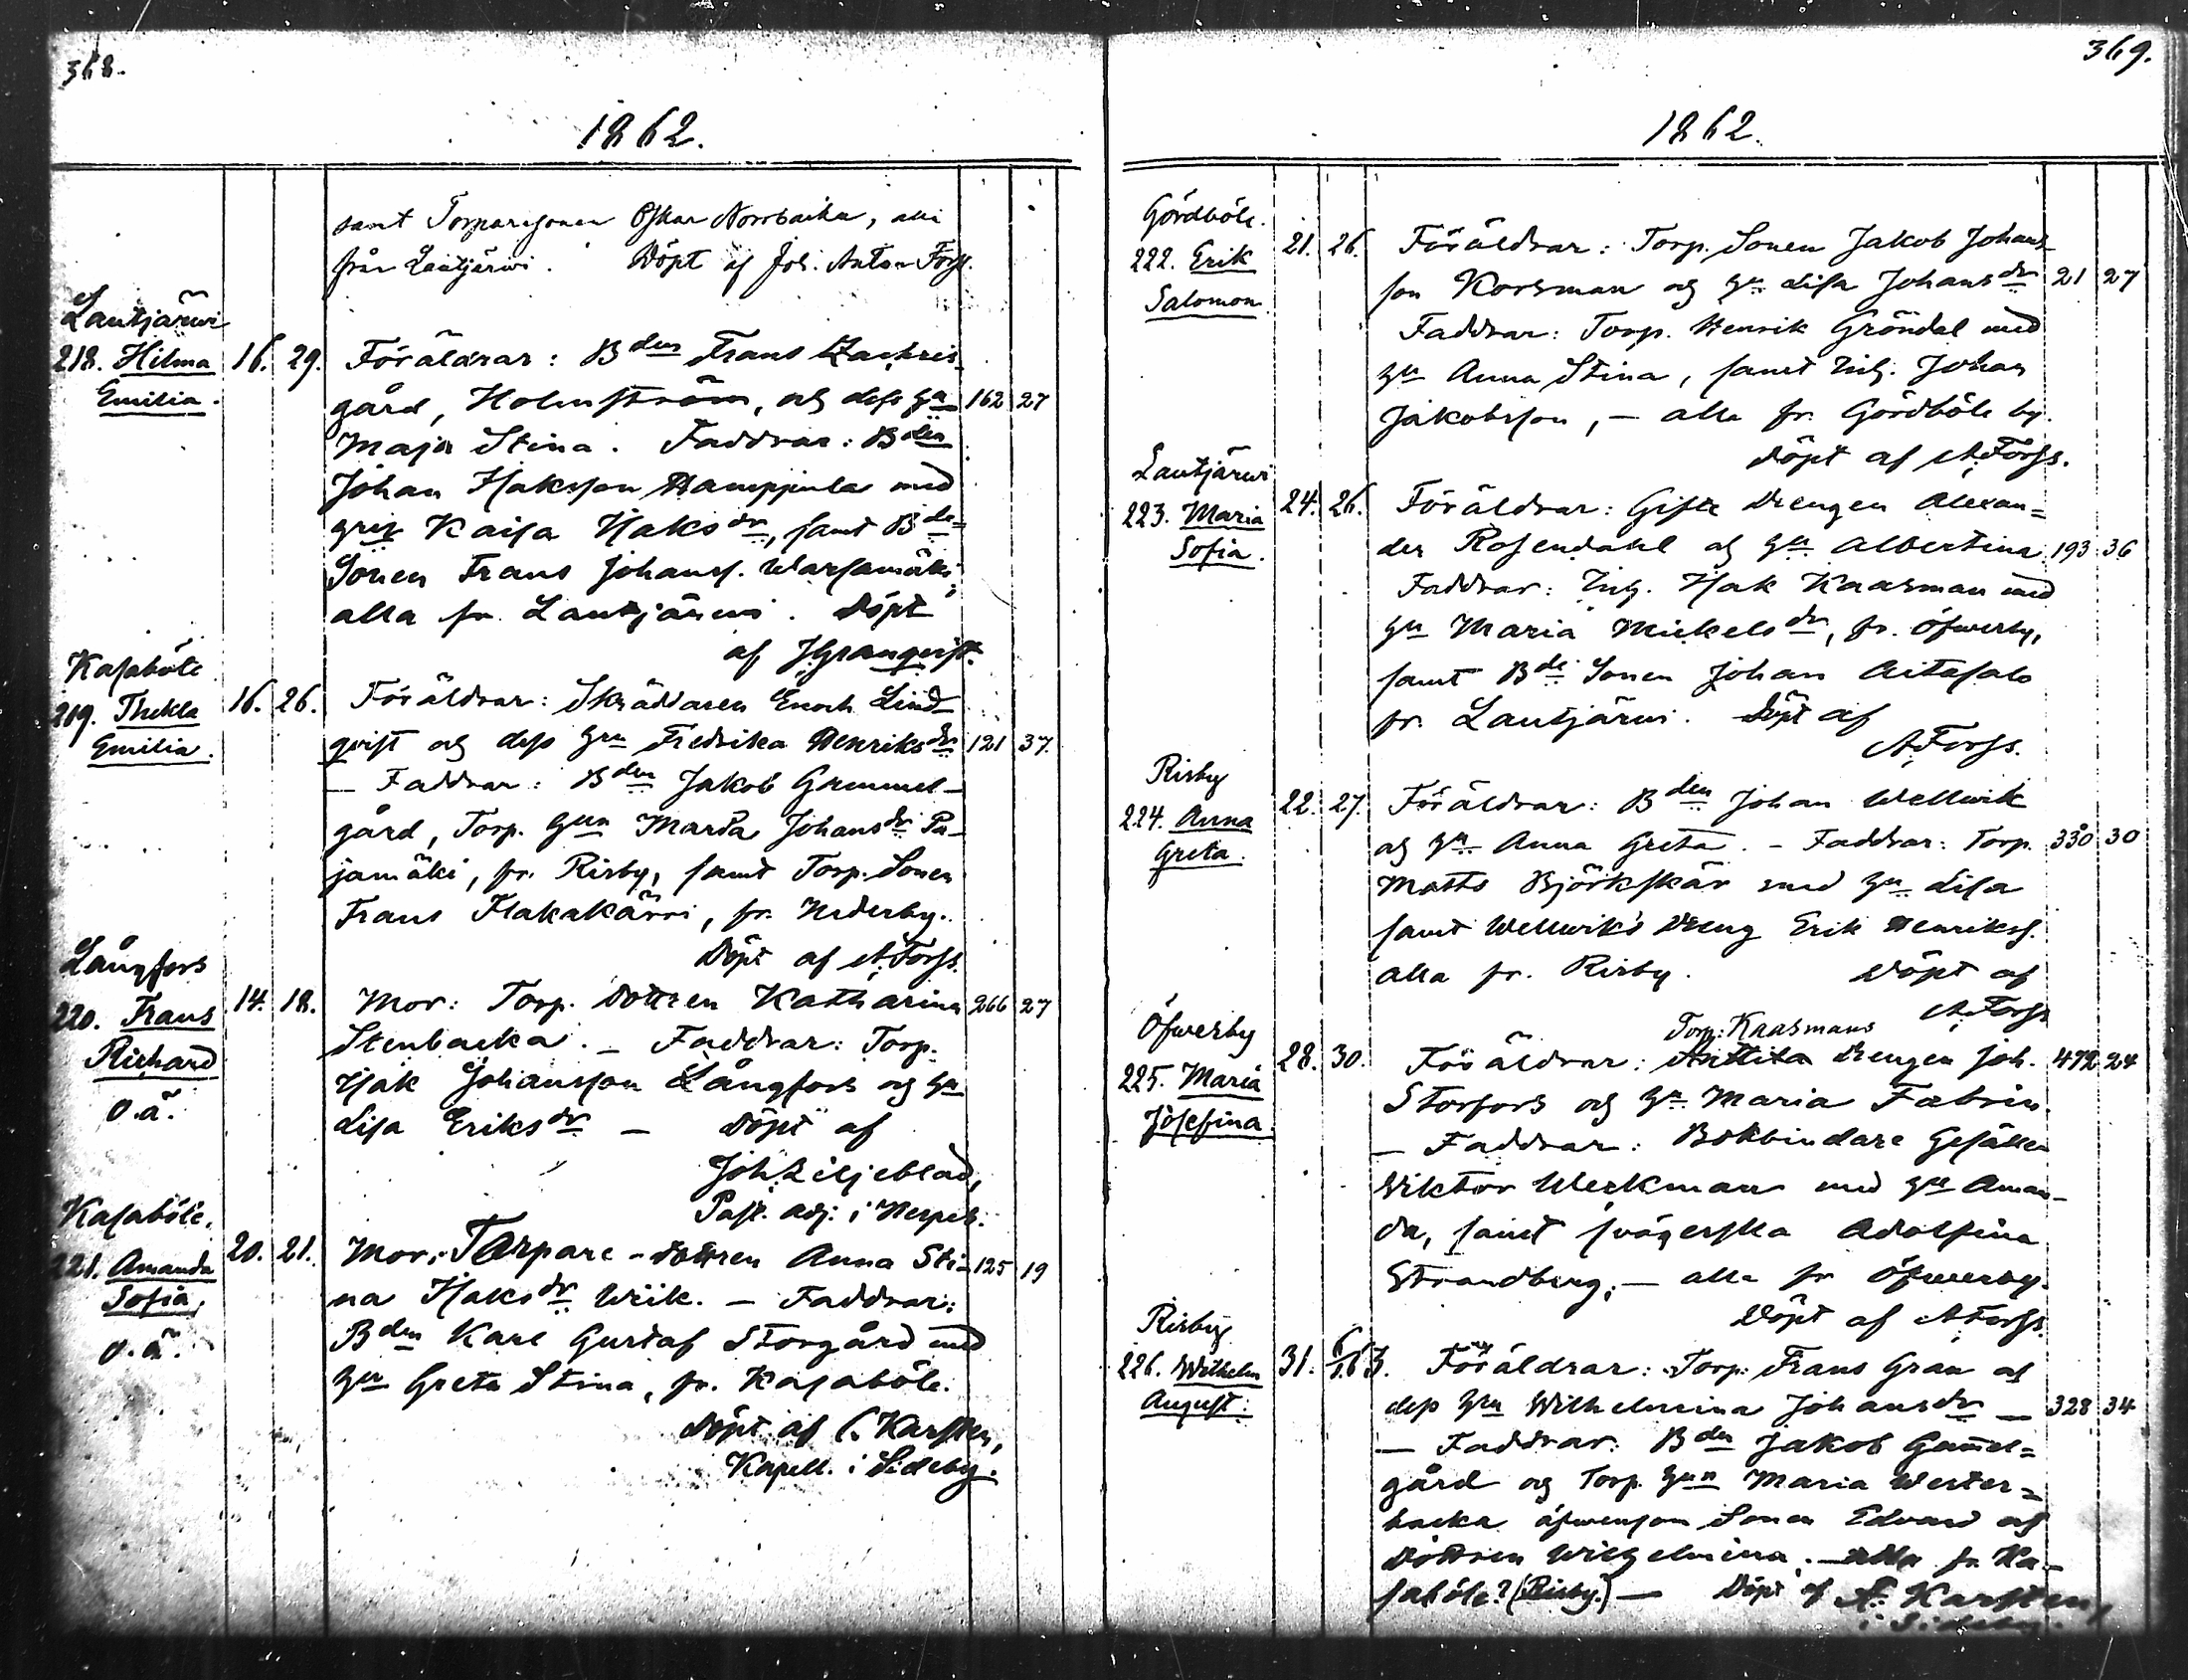 368.
1862.
samt Torparesonen Oskar Norrbacka, alla
från Lautjärwi. Döpt af Joh. Anton Forss.
Lautjärwi
218. Hilma
Emilia.
16. 29.
Föräldrar: Bden Frans Zachris-
gård, Holmström, och dess hu 162 27
Maja Stina. Faddrar: Bden
Johan Isaksson Hampjula med
hru Kaisa Isaksdr, samt Bde-
Sonen Frans Johanss. Warsamäki,
alla fr. Lautjärwi. Döpt
af JGranqvist.
Kasaböle
219. Thekla
Emilia.
16. 26.
Föräldrar: Skräddaren Enoch Lind-
qvist och dess hru Fredrika Henriksdr 121 37.
— Faddrar: Bden Jakob Gammel-
gård, Torp. hun Maria Johansdr Pa-
jamäki, fr. Risby, samt Torp. Sonen
Frans Flakakärri, fr. Nederby.
Döpt af AForss.
Långfors
220. Frans
Richard
o.ä.
14. 18.
Mor: Torp. dottren Katharina 266 27
Stenbacka. — Faddrar: Torp.
Isak Johansson Långfors och hu
Lisa Eriksdr — Döpt af
Joh Liljeblad,
Past. adj. i Nerpes.
Kasaböle.
221. Amanda
Sofia,
o.ä.
20. 21.
Mor: Torpare-dottren Anna Sti- 125 19
na Isaksdr Wiik. — Faddrar:
Bden Karl Gustaf Storgård med
hu Greta Stina, fr. Kasaböle.
Döpt af C. Karsten,
Kapell. i Sideby.
369.
1862.
Gördböle.
222. Erik
Salomon
21. 26.
Föräldrar: Torp. Sonen Jakob Johans-
son Korsman och hu Lisa Johansdr 21 27
Faddrar: Torp. Henrik Gröndal med
hu Anna Stina, samt Inh. Johan
Jakobsson, — alla fr. Gördböle by.
Döpt af AForss.
Lautjärwi
223. Maria
Sofia.
24. 26.
Föräldrar: Gifte Drengen Alexan=
der Rosendahl och hu Albertina 193 36
Faddrar: Inh. Isak Kaarman med
hu Maria Mickelsdr, fr. Öfwerby,
samt Bde Sonen Johan Aitasalo
fr. Lautjärwi. Döpt af
AForss.
Risby
224. Anna
Greta.
22. 27.
Föräldrar: Bden Johan Wellwik
och hu Anna Greta. — Faddrar: Torp. 330 30
Matts Björkskär med hu Lisa
samt Wellwiks Dreng Erik Henrikss.
alla fr. Risby. Döpt af
AForss
Öfwerby
225. Maria
Josefina.
28. 30.
Torp: Kaarmans
Föräldrar: Anttila drengen Joh. 472 24
Storfors och hu Maria Fabrin.
— Faddrar: Bokbindare Gesällen
Wiktor Werkman med hu Aman-
da, samt svägerska Adolfina
Strandberg; — alla fr Öfwerby.
Döpt af AForss.
Risby
226. Wilhelm
August.
31. 6/1 63.
Föräldrar: Torp: Frans Gran och
dess hru Wilhelmina Johansdr — 328 34
— Faddrar: Bden Jakob Gam̄el=
gård och Torp. hun Maria Wester=
backa äfwensom Sonen Edvard och
dottren Wilhelmina. — alla fr. Ka-
saböle? (Risby.) — Döpt af C. Karsten,
i Sideby.